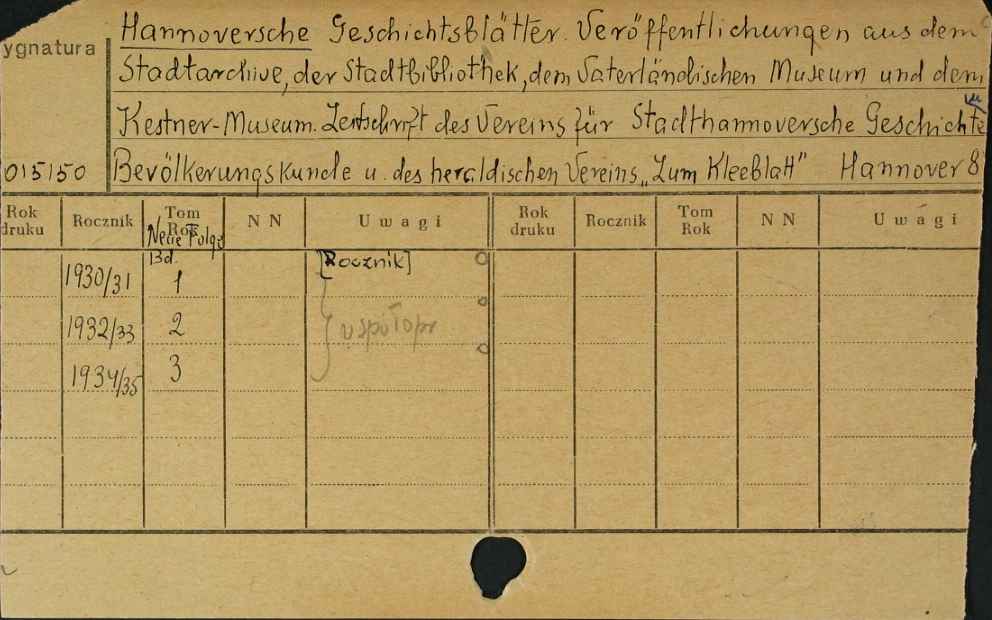 Hannoversche Geschichtsblätter. Veröffentlichungen aus dem
ygnatura
Stadtarchive, der Stadtbibliothek, dem Vaterländischen Museum und dem
Kestner-Museum. Zeitschrift des Vereins für Stadthannoversche Geschichte
015150 Bevölkerungskunde u. des heraldischen Vereins „Zum Kleeblatt" Hannover 8
Rok druku Rocznik Tom Rok N N Uwagi Rok druku Rocznik Tom Rok N N Uwagi
Neue Folge
Bd. [Rocznik]
1930/31 1
1932/33 2 współopr
1934/35 3